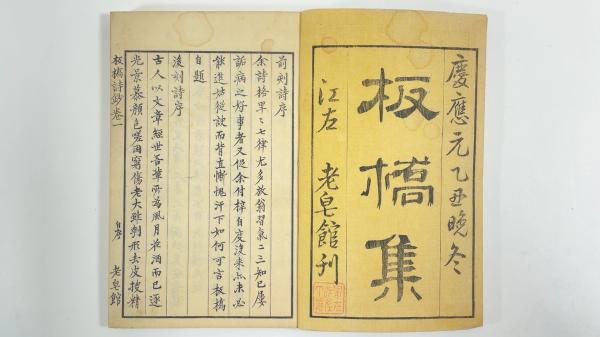 慶應元乙丑晚冬
板橋集
江左 老皂館刊
前刻詩序
余詩格卑〻七律尤多放翁習氣二三知己屢
詬病之好事者又促余付梓自度後来亦未必
能進姑從諛而背直慚愧汗下如何可言板橋
自題
後刻詩序
古人以文章經世吾輩所為風月花酒而已逐
光景慕顏色嗟困窮傷老大雖刳形去皮搜精
板橋詩鈔卷一 自序 老皂館